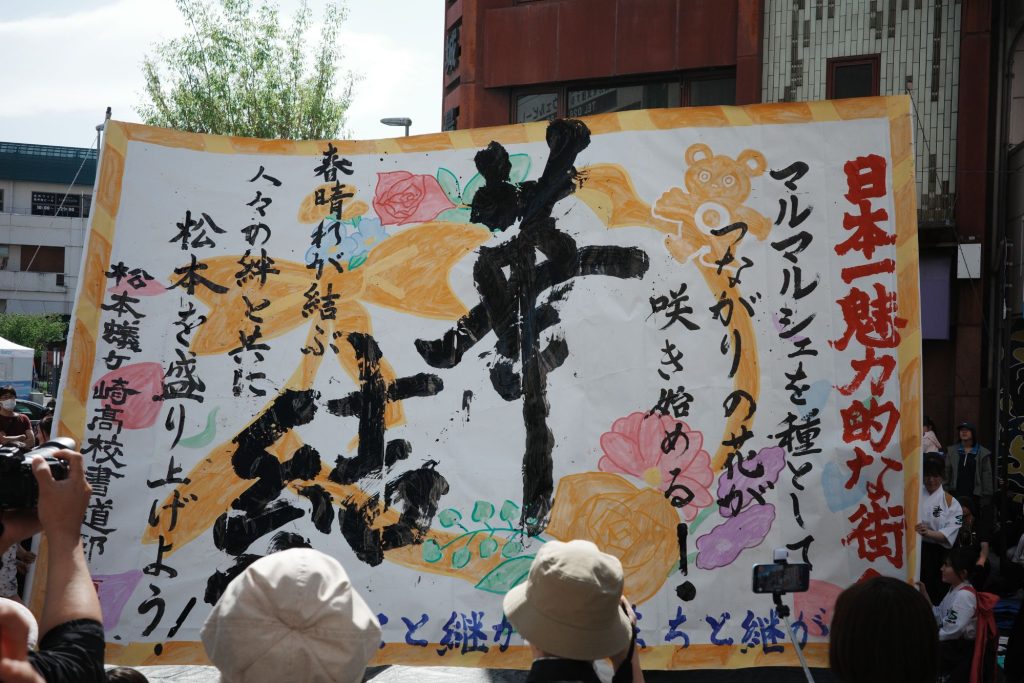 日本一魅力的な街
マルマルシェを種として
つながりの花が
咲き始める！
華結
春晴れが結ぶ
人々の絆と共に
松本を盛り上げよう！
松本蟻ケ崎高校書道部
と継が
まちと継が